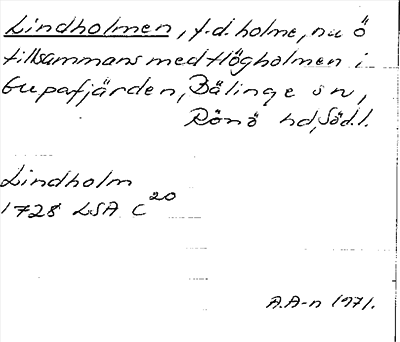 Lindholmen, f.d. holme, nu ö
tillsammans med Högholmen i
Gupafjärden, Bälinge sn,
Rönö hd, Södl.
Lindholm
1728 LSA C 20
A.A-n 1971.